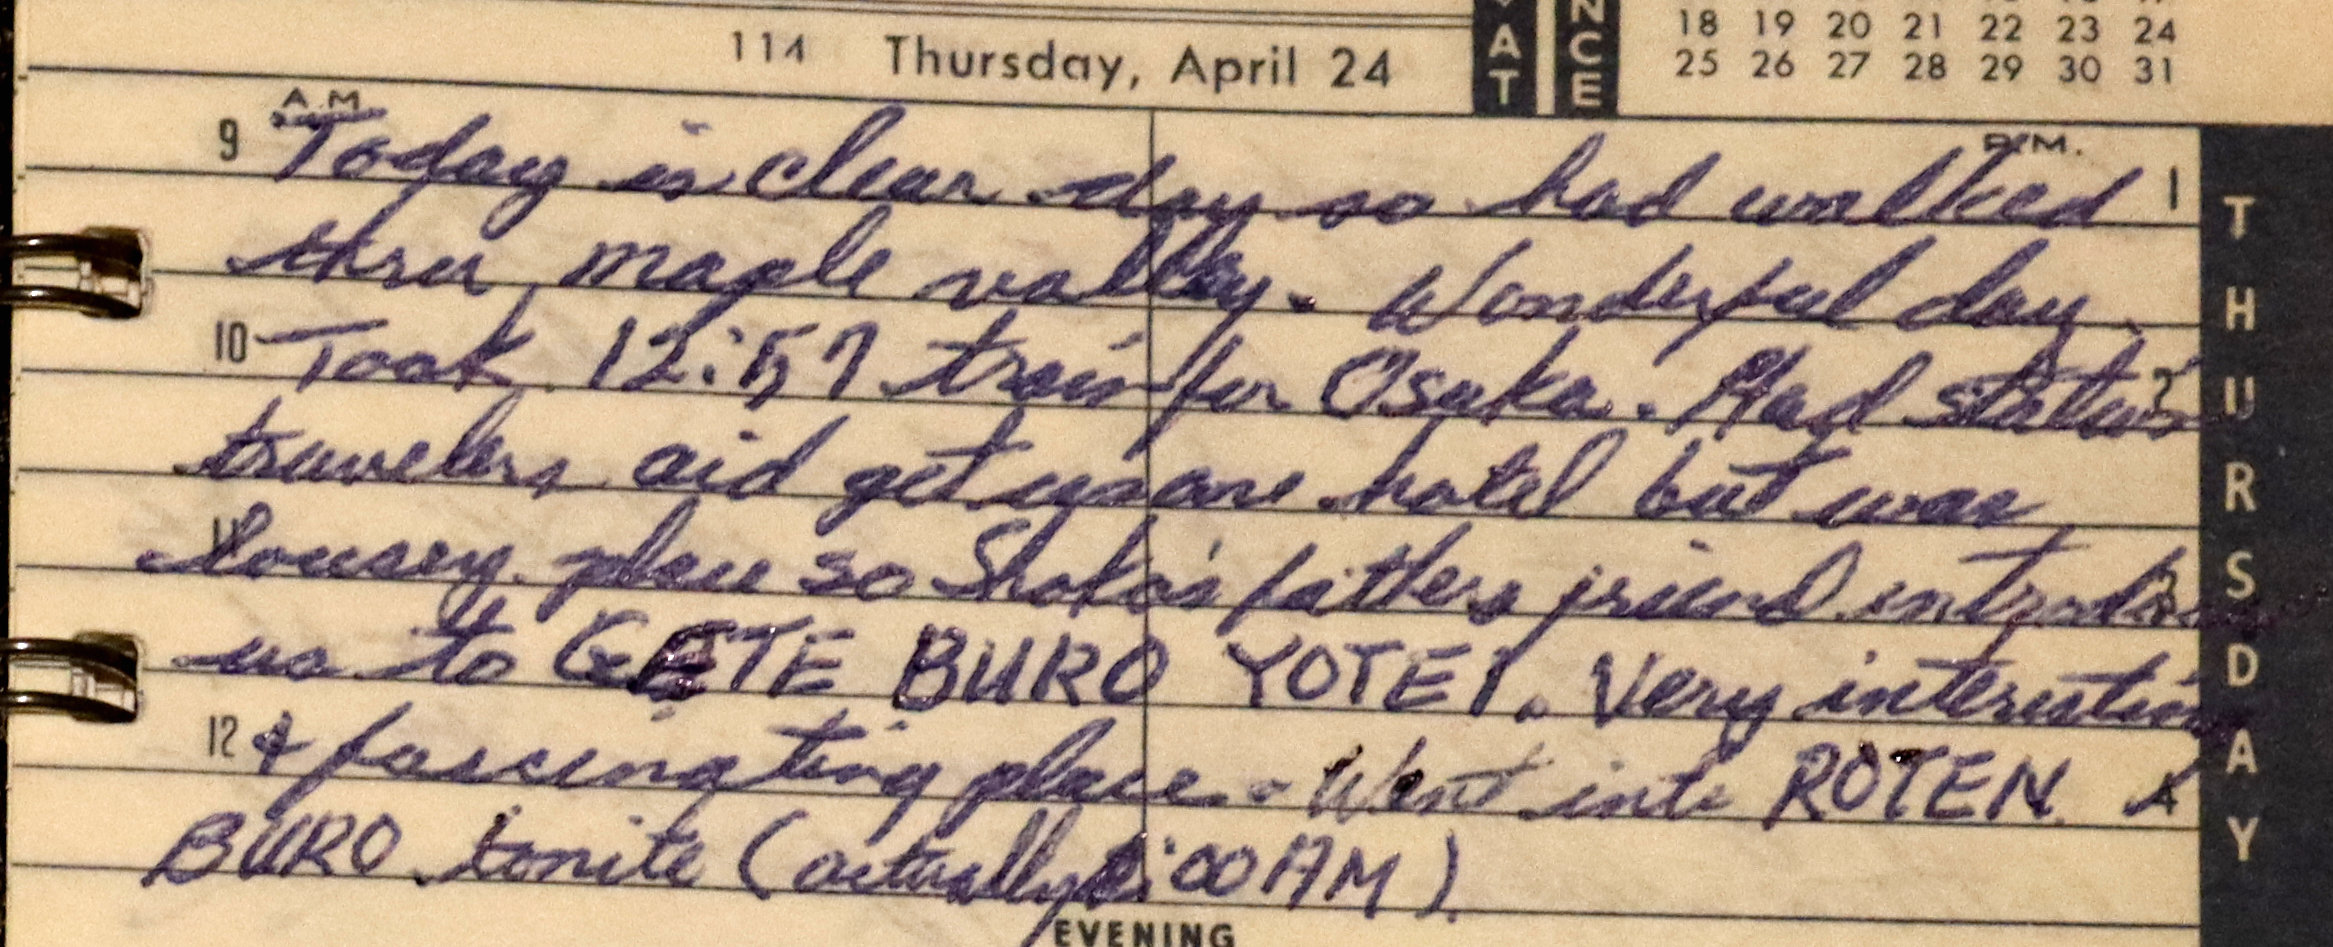 18 19 20 21 22 23 24
25 26 27 28 29 30 31
114 Thursday, April 24
AT
NCE
A.M.
P.M.
9 Today is clear day so had walked 1
thru maple valley. Wonderful day.
10 Took 12:57 train for Osaka. Had station 2
travelers aid get us one hotel but was
11 lousey place so Shoko's fathers friend introduce 3
us to GETE BURO YOTEI. Very interesting
12 & fascinating place. Went into ROTEN 4
BURO tonite (actually :00 AM).
EVENING
THURSDAY